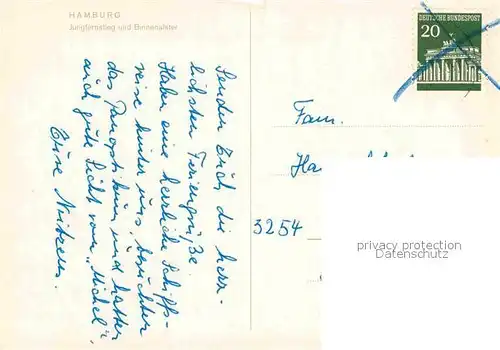 HAMBURG
Jungfernstieg und Binnenalster
Senden Euch die herz-
lichsten Feriengrüße.
Haben eine herrliche Schiffs-
reise hinter uns, besichten
das Panoptikum und hatten
auch gute Sicht vom "Michel".
Eure
DEUTSCHE BUNDESPOST
20
Fam.
Ha
3254
privacy protection
Datenschutz